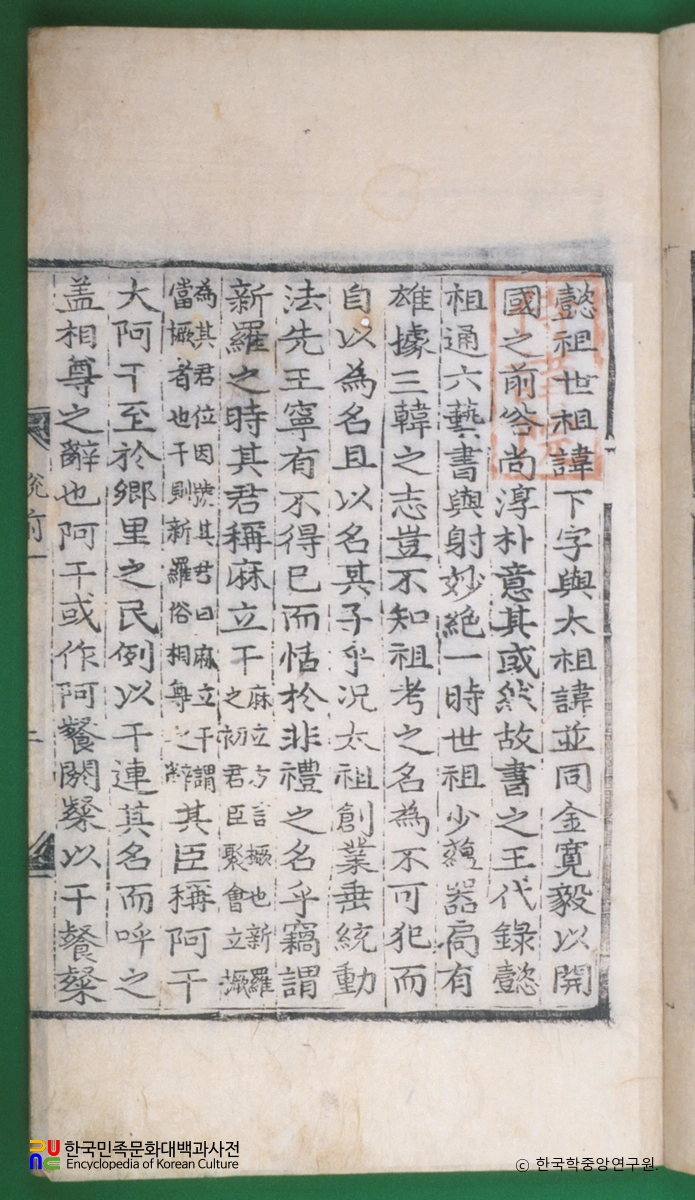 懿祖世祖諱下字與太祖諱並同金寛毅以開
國之前俗尚淳朴意其或然故書之王代録懿
祖通六藝書與射妙絶一時世祖少蘊器局有
雄據三韓之志豈不知祖考之名為不可犯而
自以為名且以名其子乎况太祖創業垂統動
法先王寧有不得已而恬於非禮之名乎竊謂
新羅之時其君稱麻立干麻立方言橛也新羅
之初君臣聚會立橛
為其君位因號其君曰麻立干謂
當橛者也干則新羅俗相尊之辭其臣稱阿干
大阿干至於郷里之民例以干連其名而呼之
盖相尊之辭也阿干或作阿餐閼粲以干餐粲
한국민족문화대백과사전
Encyclopedia of Korean Culture
© 한국학중앙연구원.